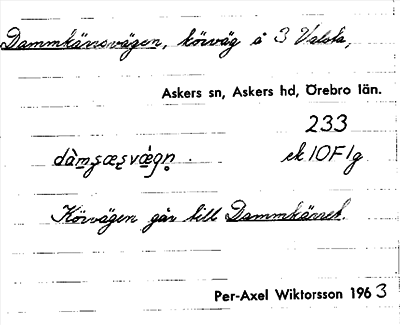 Dammkärrsvägen, körväg å 3 Valsta,
Askers sn, Askers hd, Örebro län.
233
dàmʂæʂvǽgn̥. ek 10F1g
Körvägen går till Dammkärret.
Per-Axel Wiktorsson 1963